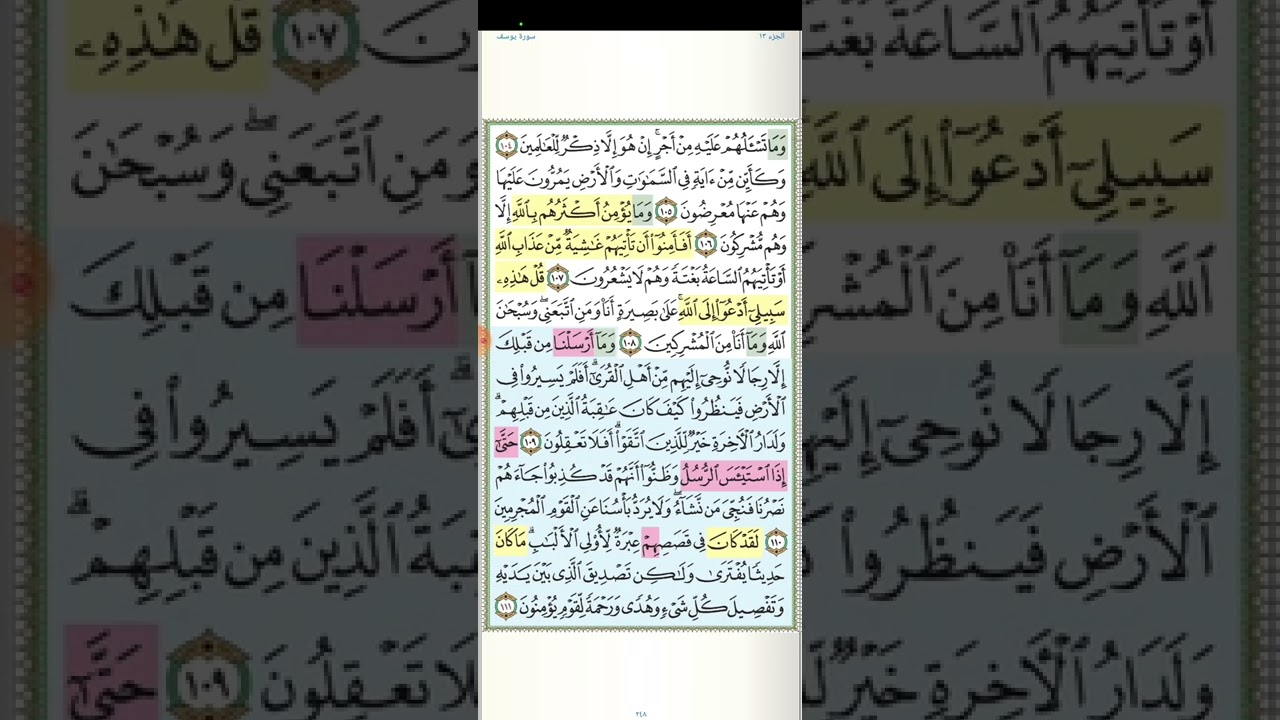 الجزء ١٣
سورة يوسف
وَمَا تَسْـَٔلُهُمْ عَلَيْهِ مِنْ أَجْرٍ ۚ إِنْ هُوَ إِلَّا ذِكْرٌ لِّلْعَـٰلَمِينَ ١٠٤
وَكَأَيِّن مِّنْ ءَايَةٍ فِى ٱلسَّمَـٰوَٰتِ وَٱلْأَرْضِ يَمُرُّونَ عَلَيْهَا
وَهُمْ عَنْهَا مُعْرِضُونَ ١٠٥ وَمَا يُؤْمِنُ أَكْثَرُهُم بِٱللَّهِ إِلَّا
وَهُم مُّشْرِكُونَ ١٠٦ أَفَأَمِنُوٓا۟ أَن تَأْتِيَهُمْ غَـٰشِيَةٌ مِّنْ عَذَابِ ٱللَّهِ
أَوْ تَأْتِيَهُمُ ٱلسَّاعَةُ بَغْتَةً وَهُمْ لَا يَشْعُرُونَ ١٠٧ قُلْ هَـٰذِهِۦ
سَبِيلِىٓ أَدْعُوٓا۟ إِلَى ٱللَّهِ ۚ عَلَىٰ بَصِيرَةٍ أَنَا۠ وَمَنِ ٱتَّبَعَنِى ۖ وَسُبْحَـٰنَ
ٱللَّهِ وَمَآ أَنَا۠ مِنَ ٱلْمُشْرِكِينَ ١٠٨ وَمَآ أَرْسَلْنَا مِن قَبْلِكَ
إِلَّا رِجَالًا نُّوحِىٓ إِلَيْهِم مِّنْ أَهْلِ ٱلْقُرَىٰٓ ۗ أَفَلَمْ يَسِيرُوا۟ فِى
ٱلْأَرْضِ فَيَنظُرُوا۟ كَيْفَ كَانَ عَـٰقِبَةُ ٱلَّذِينَ مِن قَبْلِهِمْ ۗ
وَلَدَارُ ٱلْـَٔاخِرَةِ خَيْرٌ لِّلَّذِينَ ٱتَّقَوْا۟ ۗ أَفَلَا تَعْقِلُونَ ١٠٩ حَتَّىٰٓ
إِذَا ٱسْتَيْـَٔسَ ٱلرُّسُلُ وَظَنُّوٓا۟ أَنَّهُمْ قَدْ كُذِبُوا۟ جَآءَهُمْ
نَصْرُنَا فَنُجِّىَ مَن نَّشَآءُ ۖ وَلَا يُرَدُّ بَأْسُنَا عَنِ ٱلْقَوْمِ ٱلْمُجْرِمِينَ
١١٠ لَقَدْ كَانَ فِى قَصَصِهِمْ عِبْرَةٌ لِّأُو۟لِى ٱلْأَلْبَـٰبِ ۗ مَا كَانَ
حَدِيثًا يُفْتَرَىٰ وَلَـٰكِن تَصْدِيقَ ٱلَّذِى بَيْنَ يَدَيْهِ
وَتَفْصِيلَ كُلِّ شَىْءٍ وَهُدًى وَرَحْمَةً لِّقَوْمٍ يُؤْمِنُونَ ١١١
٢٤٨